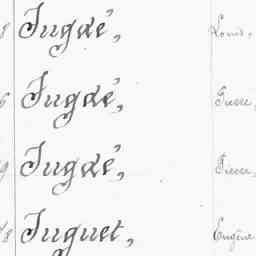 8 Jugdé, Louis,
6 Jugdé, Pierre,
9 Jugdé, Pierre,
8 Juguet, Eugène